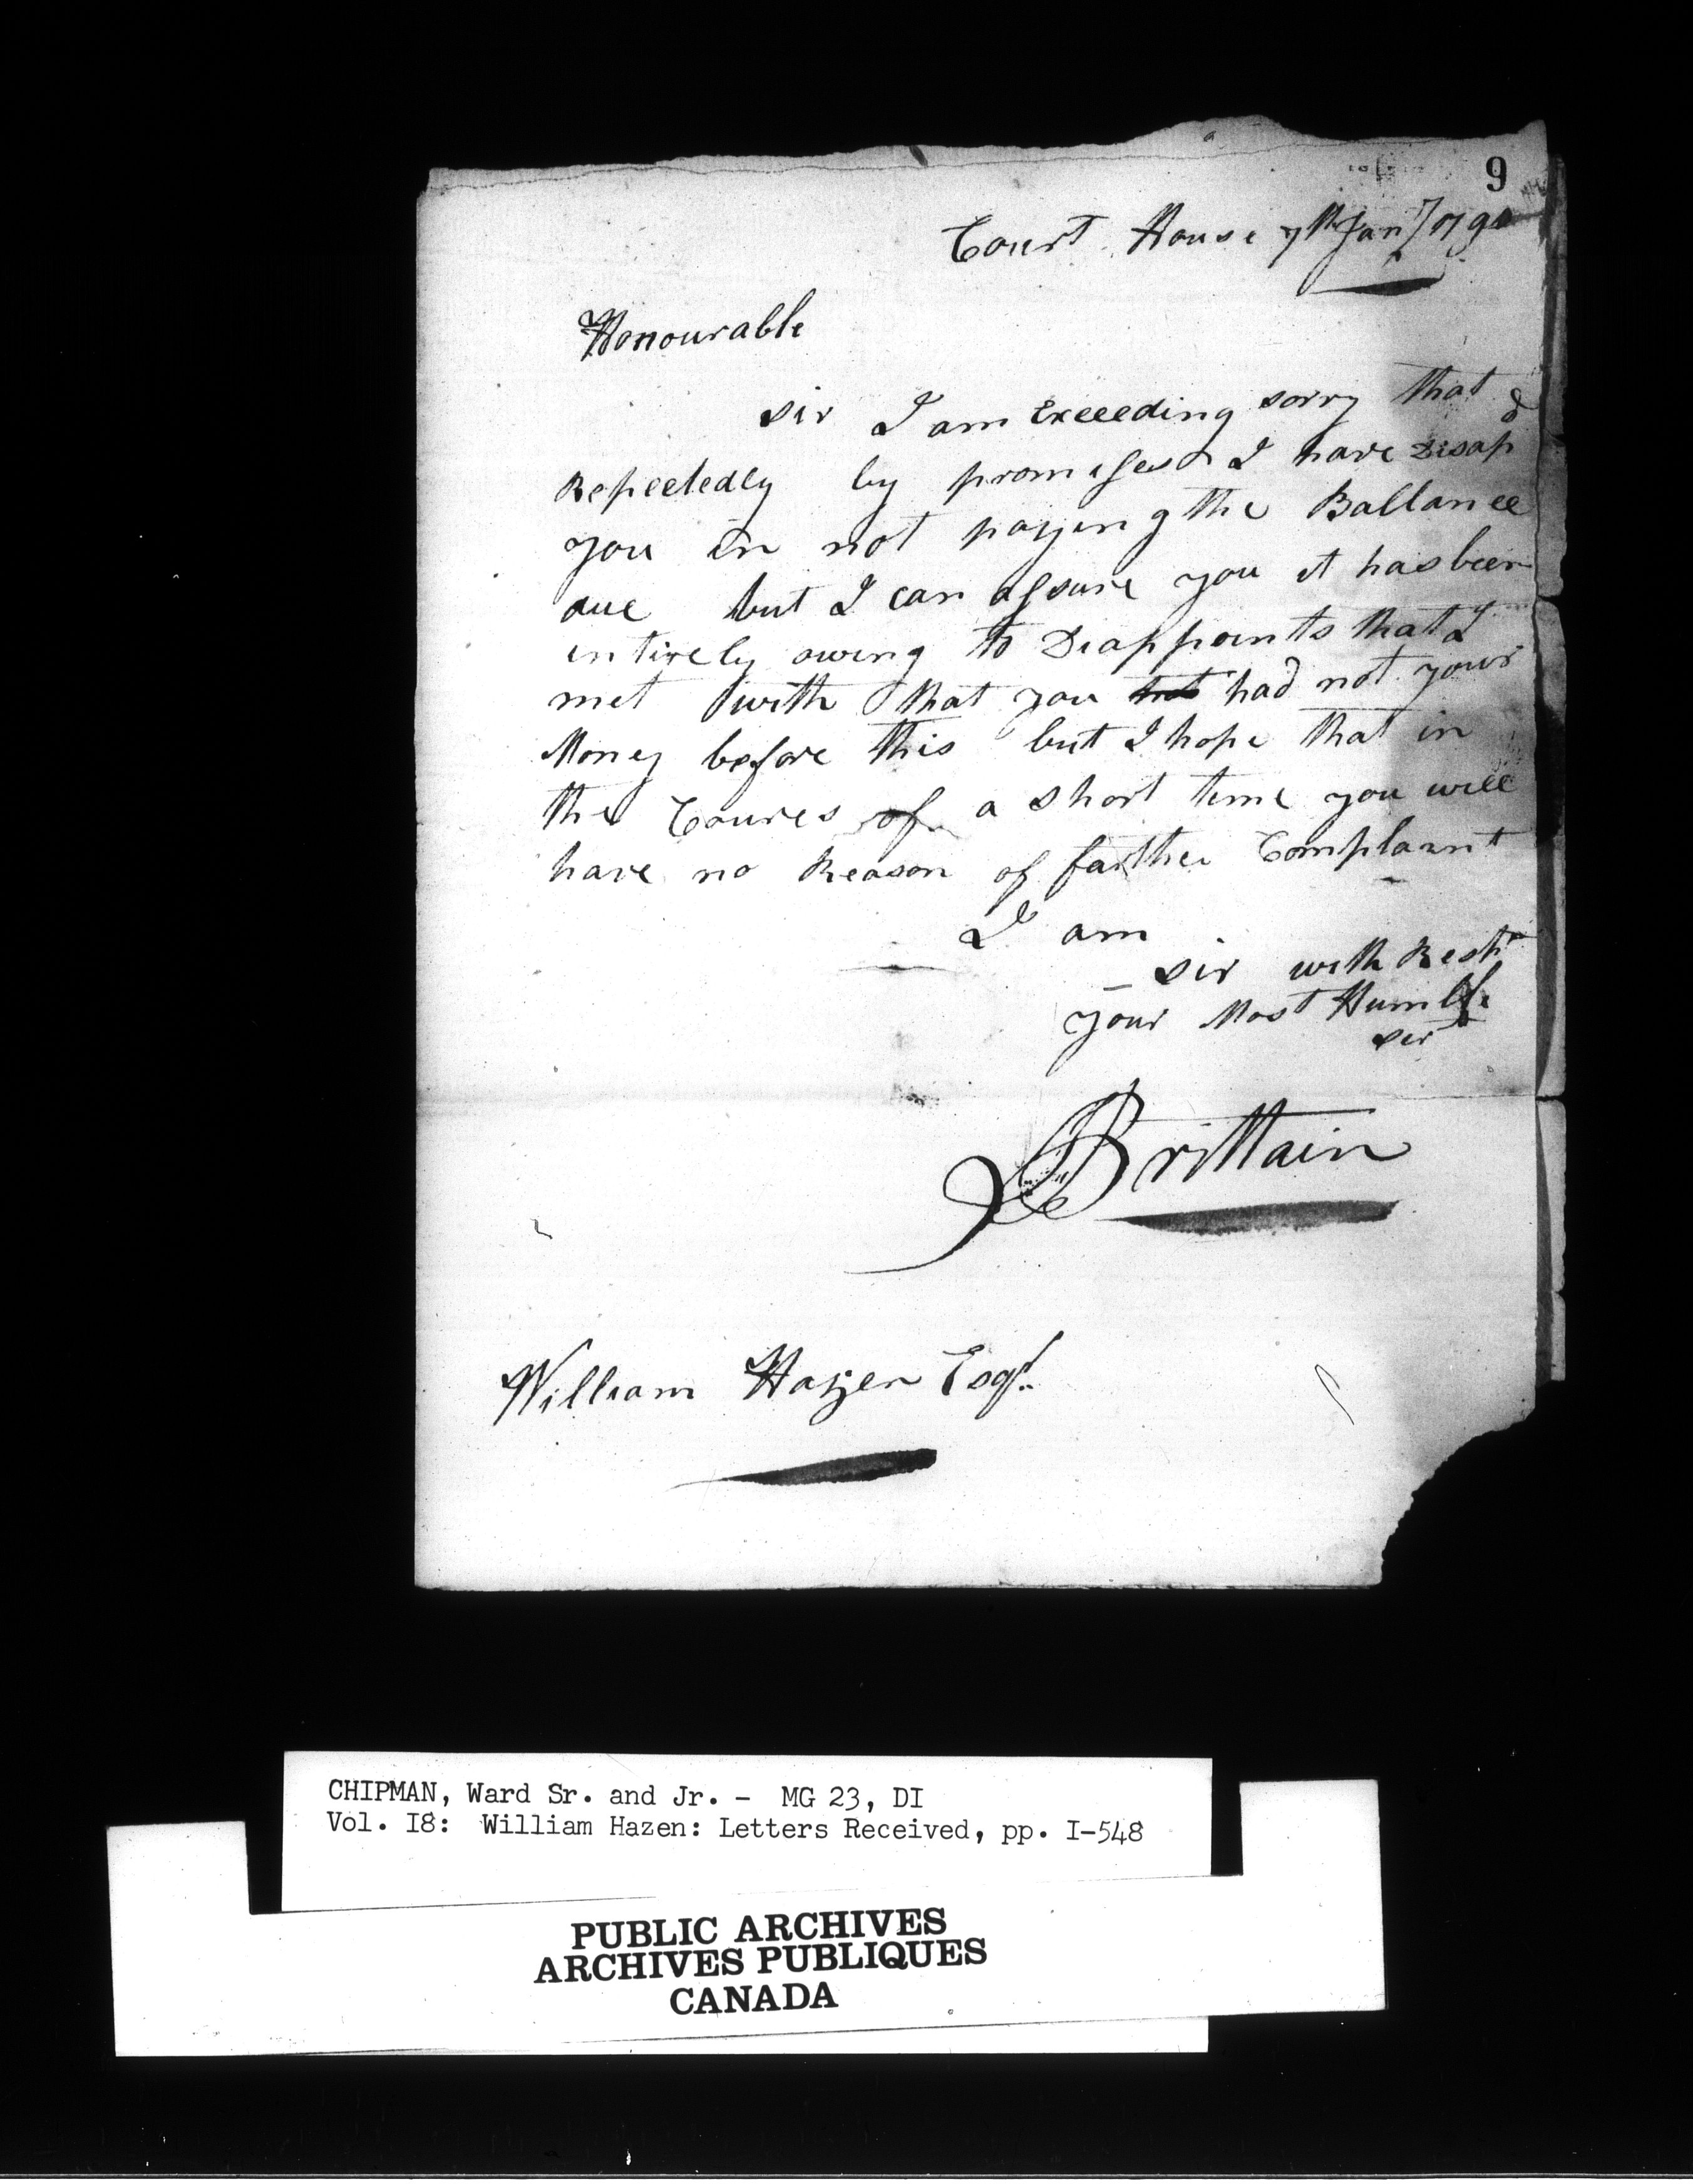 9
Court House 7th Jany 179
Honourable
Sir I am Exceeding sorry that
Repeetedly by promises I have Disap
you in not paying the Ballance
due but I can assure you it has been
intirely owing to Diappoints that I
met with that you had not your
Money before this but I hope that in
the Coures of a short time you will
have no Reason of farther Complaint
I am
Sir with Respt
your Most Humble
sert
Brittain
William Hazen Esqr.
CHIPMAN, Ward Sr. and Jr. - MG 23, DI
Vol. I8: William Hazen: Letters Received, pp. I-548
PUBLIC ARCHIVES
ARCHIVES PUBLIQUES
CANADA